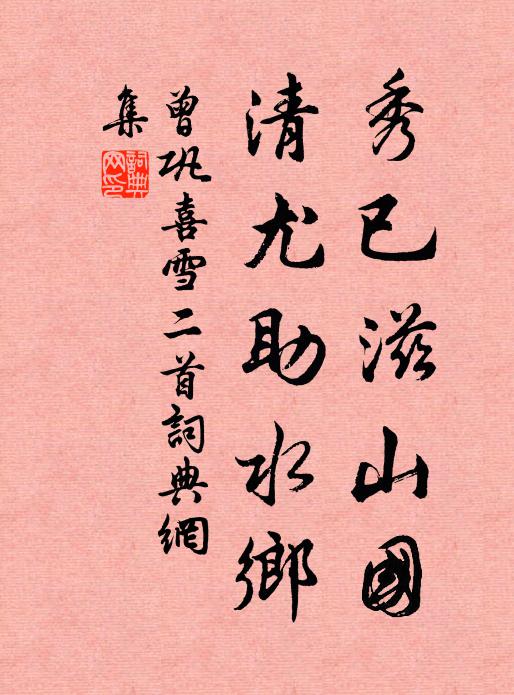 秀已滋山國
清尤助水鄉
曾巩喜雪二首詞典網
集
詞典网印